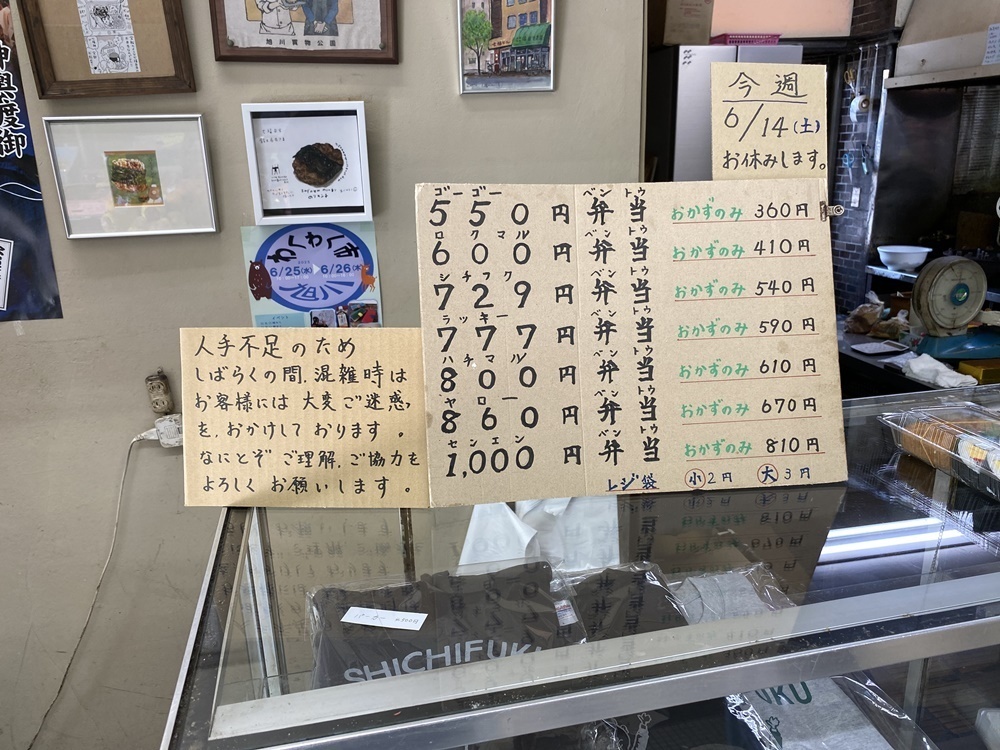 旭川買物公園
神輿渡御
わくわくす
6/25(水) 6/26(木)
旭川
今週
6/14(土)
お休みします。
人手不足のため
しばらくの間、混雑時は
お客様には大変ご迷惑
を、おかけしております。
なにとぞご理解、ご協力を
よろしくお願いします。
ゴーゴー ベントウ
550円 弁当 おかずのみ 360円
ロクマル ベントウ
600円 弁当 おかずのみ 410円
シチフク ベントウ
729円 弁当 おかずのみ 540円
ラッキー ベントウ
777円 弁当 おかずのみ 590円
ハチマル ベントウ
800円 弁当 おかずのみ 610円
ヤロー ベントウ
860円 弁当 おかずのみ 670円
センエン ベントウ
1,000円 弁当 おかずのみ 810円
レジ袋 小2円 大3円
パーカー
SHICHIFUKU
UKU